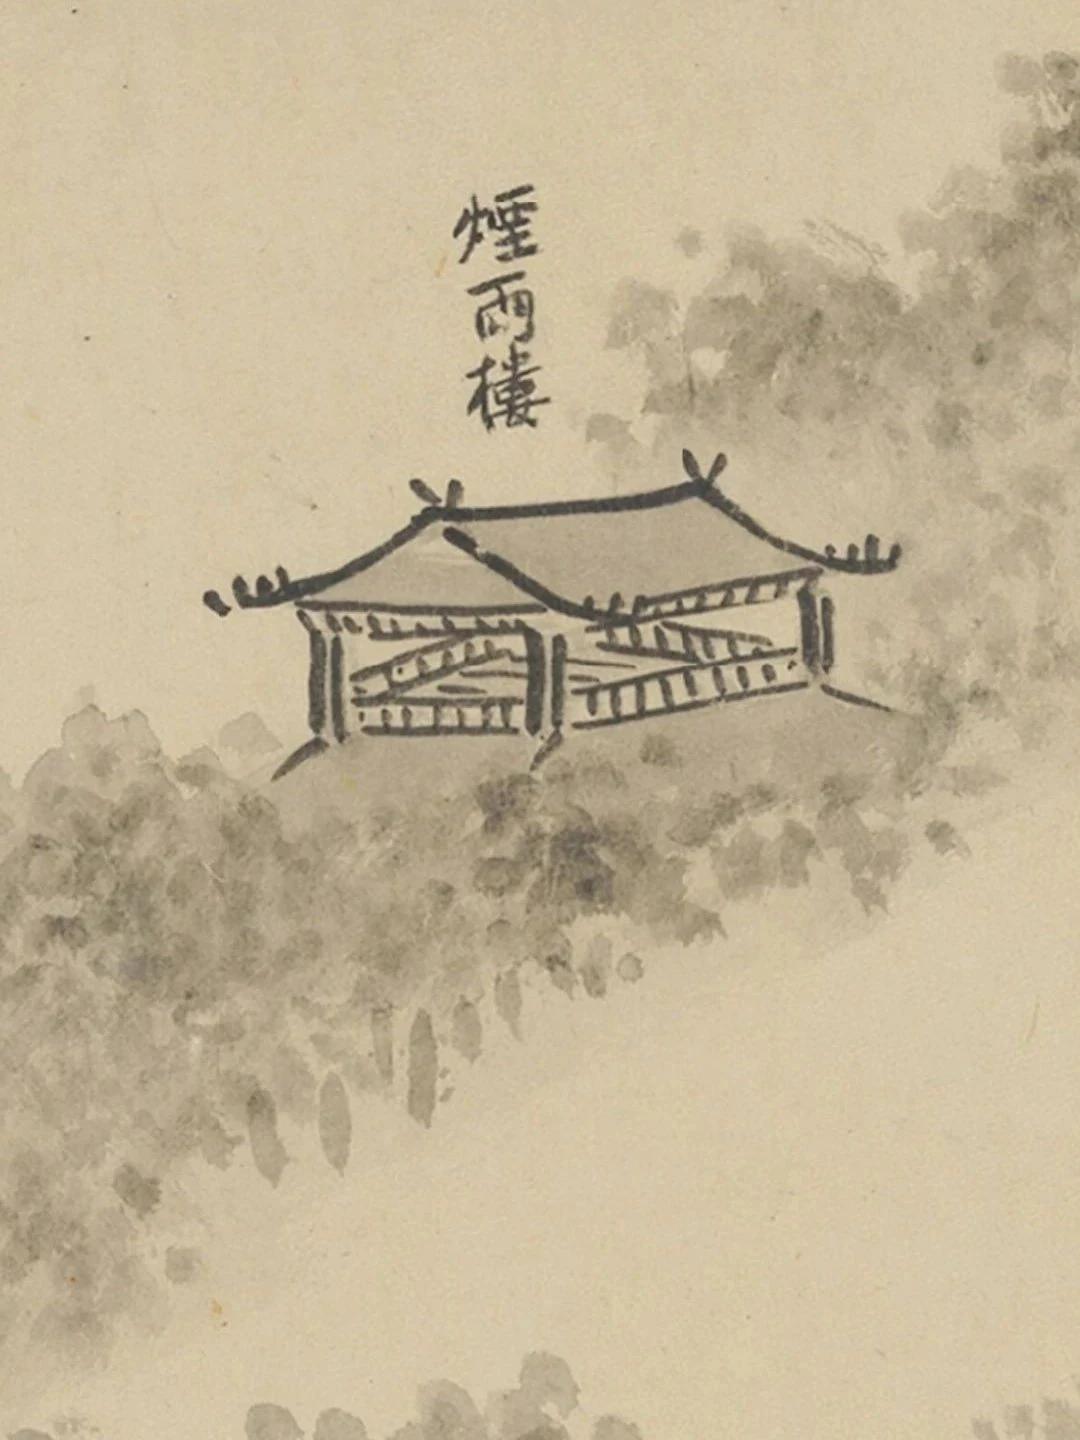 煙雨樓